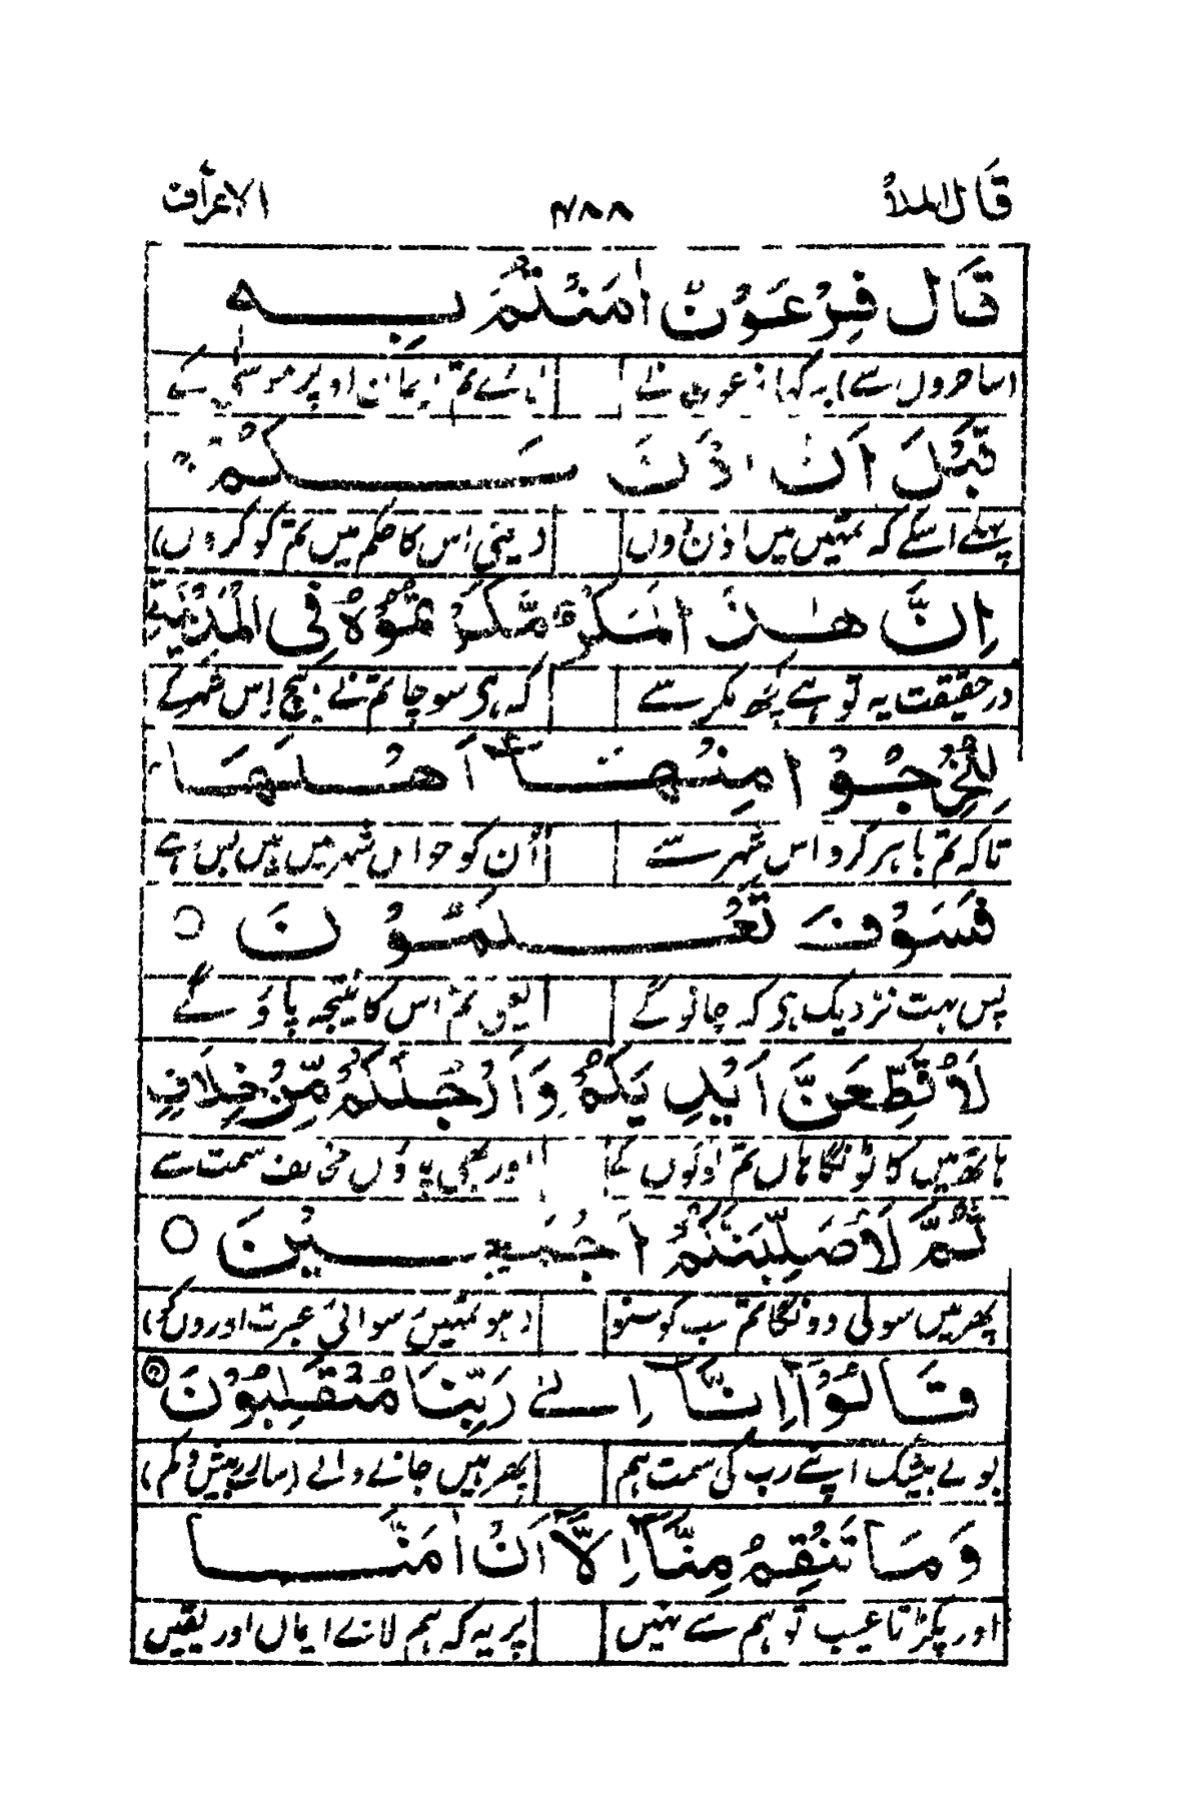 قَالَ الملاُ ۷۸۸ الاعرَاف
قَالَ فِرْعَوْنُ اٰمَنْتُمْ بِهٖ
(ساحروں سے) یہ کہا فرعون نے لائے تم ایمان اوپر موسیٰ کے
قَبْلَ اَنْ اٰذَنَ لَكُمْ ۚ
پہلے اسکے کہ تمہیں میں اذن دوں (یعنی اس کا حکم میں تم کو کروں)
اِنَّ هٰذَا لَمَكْرٌ مَّكَرْ تُمُوْهُ فِی الْمَدِیْنَةِ
درحقیقت یہ تو ہے کچھ مکر سے کہ جو سوچا تم نے بیچ اِس شہر کے
لِتُخْرِجُوْا مِنْهَاۤ اَهْلَهَا ۚ
تاکہ تم باہر کرو اس شہر سے اُن کو جو اس شہر میں ہیں بس رہے
فَسَوْفَ تَعْلَمُوْنَ ○
پس بہت نزدیک ہی کہ جانو گے یعنی تم اس کا نتیجہ پاؤ گے
لَاُقَطِّعَنَّ اَیْدِیَكُمْ وَاَرْجُلَكُمْ مِّنْ خِلَافٍ
ہاتھ میں کاٹونگا ہاں تم لوگوں کے اور بھی پاؤں مخالف سمت سے
ثُمَّ لَاُصَلِّبَنَّكُمْ اَجْمَعِیْنَ ○
پھر میں سولی دونگا تم سب کو سنو (ہو تمہیں سے عبرت اوروں کو)
قَالُوْۤا اِنَّاۤ اِلٰی رَبِّنَا مُنْقَلِبُوْنَ
بولے بیشک اپنے رب کی سمت ہم پھر ہیں جانے والے (سارے بیش و کم)
وَمَا تَنْقِمُ مِنَّاۤ اِلَّاۤ اَنْ اٰمَنَّا
اور پکڑتا عیب تو ہم سے نہیں پر یہ کہ ہم لائے ایماں اور یقیں